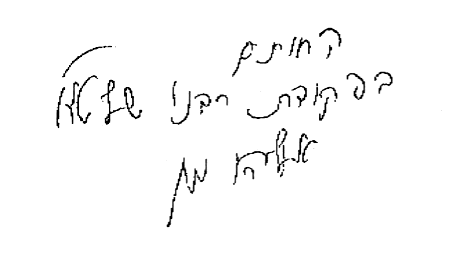 החותם
בפקודת רבנו שליט"א
אליהו מן